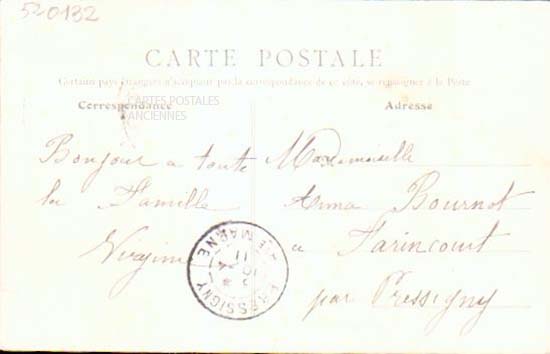 520132
CARTE POSTALE
Certains pays étrangers n'acceptant pas la correspondance de ce côté, se renseigner à la Poste
Correspondance
Adresse
CARTES POSTALES
ANCIENNES
Bonjour a toute
la Famille
Virginie
Mademoiselle
Anna Bournot
a Farincourt
par Pressigny
PRESSIGNY
HTE MARNE